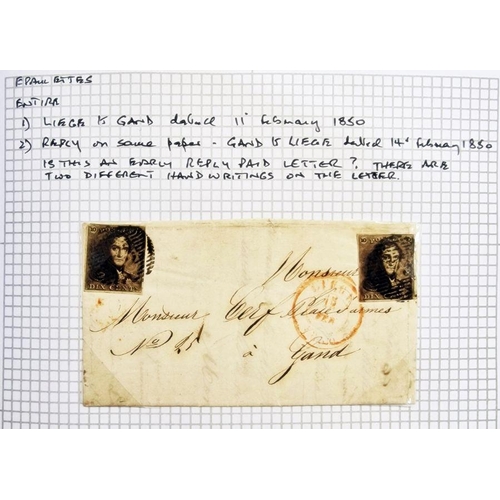 EPAULETTES
ENTIRE
1) LIEGE to GAND dated 11 February 1850
2) REPLY on same paper - GAND to LIEGE dated 14 February 1850
IS THIS AN EARLY REPLY PAID LETTER? THERE ARE
TWO DIFFERENT HANDWRITINGS ON THE LETTER.
10 10
DIX CENT DIX
Monsieur
LIEGE
Monsieur Cerf Place d'armes
No 25 à Gand